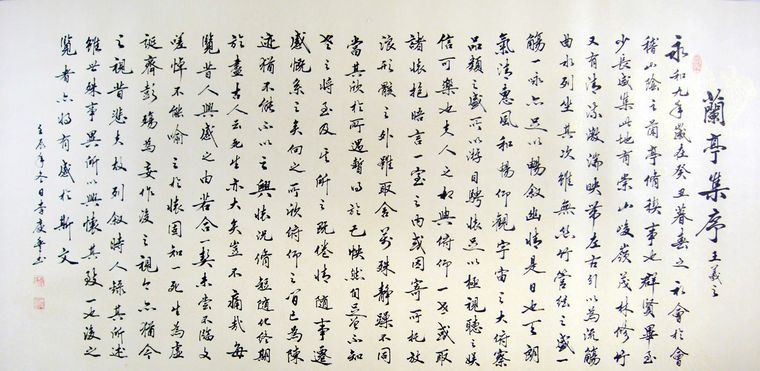 蘭亭集序 王羲之
永和九年歲在癸丑暮春之初會於會
稽山陰之蘭亭脩稧事也群賢畢至
少長咸集此地有崇山峻嶺茂林修竹
又有清流激湍映帶左右引以為流觴
曲水列坐其次雖無絲竹管弦之盛一
觴一詠亦足以暢敘幽情是日也天朗
氣清惠風和暢仰觀宇宙之大俯察
品類之盛所以游目騁懷足以極視聽之娛
信可樂也夫人之相與俯仰一世或取
諸懷抱晤言一室之內或因寄所托放
浪形骸之外雖取舍萬殊靜躁不同
當其欣於所遇暫得於己怏然自足曾不知
老之將至及其所之既倦情隨事遷
感慨系之矣向之所欣俯仰之間已為陳
迹猶不能不以之興懷況脩短隨化終期
於盡古人云死生亦大矣豈不痛哉每
覽昔人興感之由若合一契未嘗不臨文
嗟悼不能喻之於懷固知一死生為虛
誕齊彭殤為妄作後之視今亦猶今
之視昔悲夫故列敘時人錄其所述
雖世殊事異所以興懷其致一也後之
覽者亦將有感於斯文
壬辰年冬日李